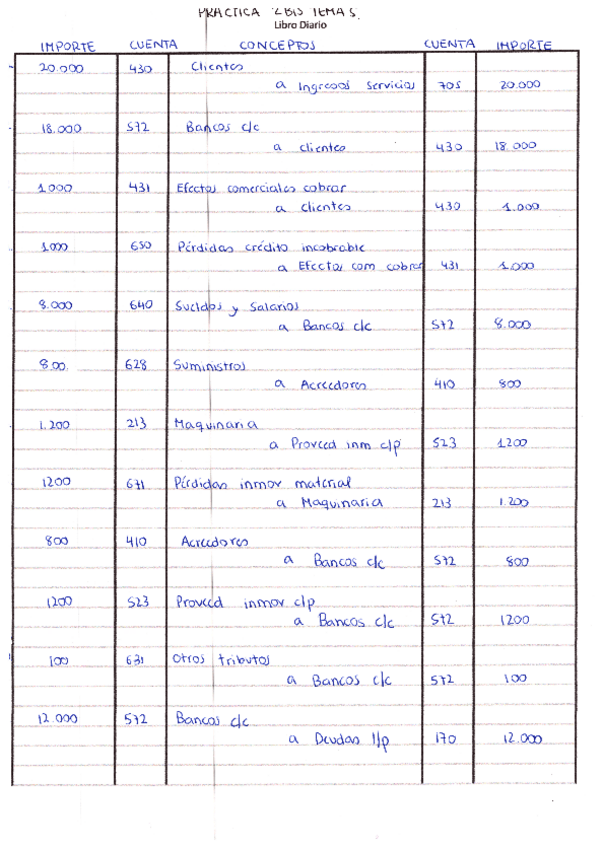 PRACTICA 2BIS TEMA 5.
Libro Diario
IMPORTE CUENTA CONCEPTOS CUENTA IMPORTE
20.000 430 Clientes
a Ingresos servicios 705 20.000
18.000 572 Bancos c/c
a clientes 430 18.000
1.000 431 Efectos comerciales cobrar
a clientes 430 1.000
1.000 650 Pérdidas crédito incobrable
a Efectos com cobrar 431 1.000
8.000 640 Sueldos y Salarios
a Bancos c/c 572 8.000
800 628 Suministros
a Acreedores 410 800
1.200 213 Maquinaria
a Proveed inm c/p 523 1200
1200 671 Pérdidas inmov material
a Maquinaria 213 1.200
800 410 Acreedores
a Bancos c/c 572 800
1200 523 Proveed inmov c/p
a Bancos c/c 572 1200
100 631 Otros tributos
a Bancos c/c 572 100
12.000 572 Bancos c/c
a Deudas l/p 170 12.000